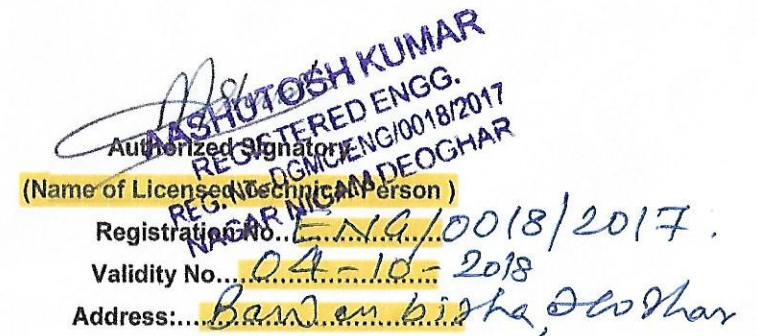 AASHUTOSH KUMAR
REGISTERED ENGG.
REG. NO- DGMC/ENG/0018/2017
NAGAR NIGAM DEOGHAR
Authorized Signatory
(Name of Licensed Technical Person )
Registration No.. ENG/0018/2017.
Validity No.... 04-10-2018
Address:.... Deoghar